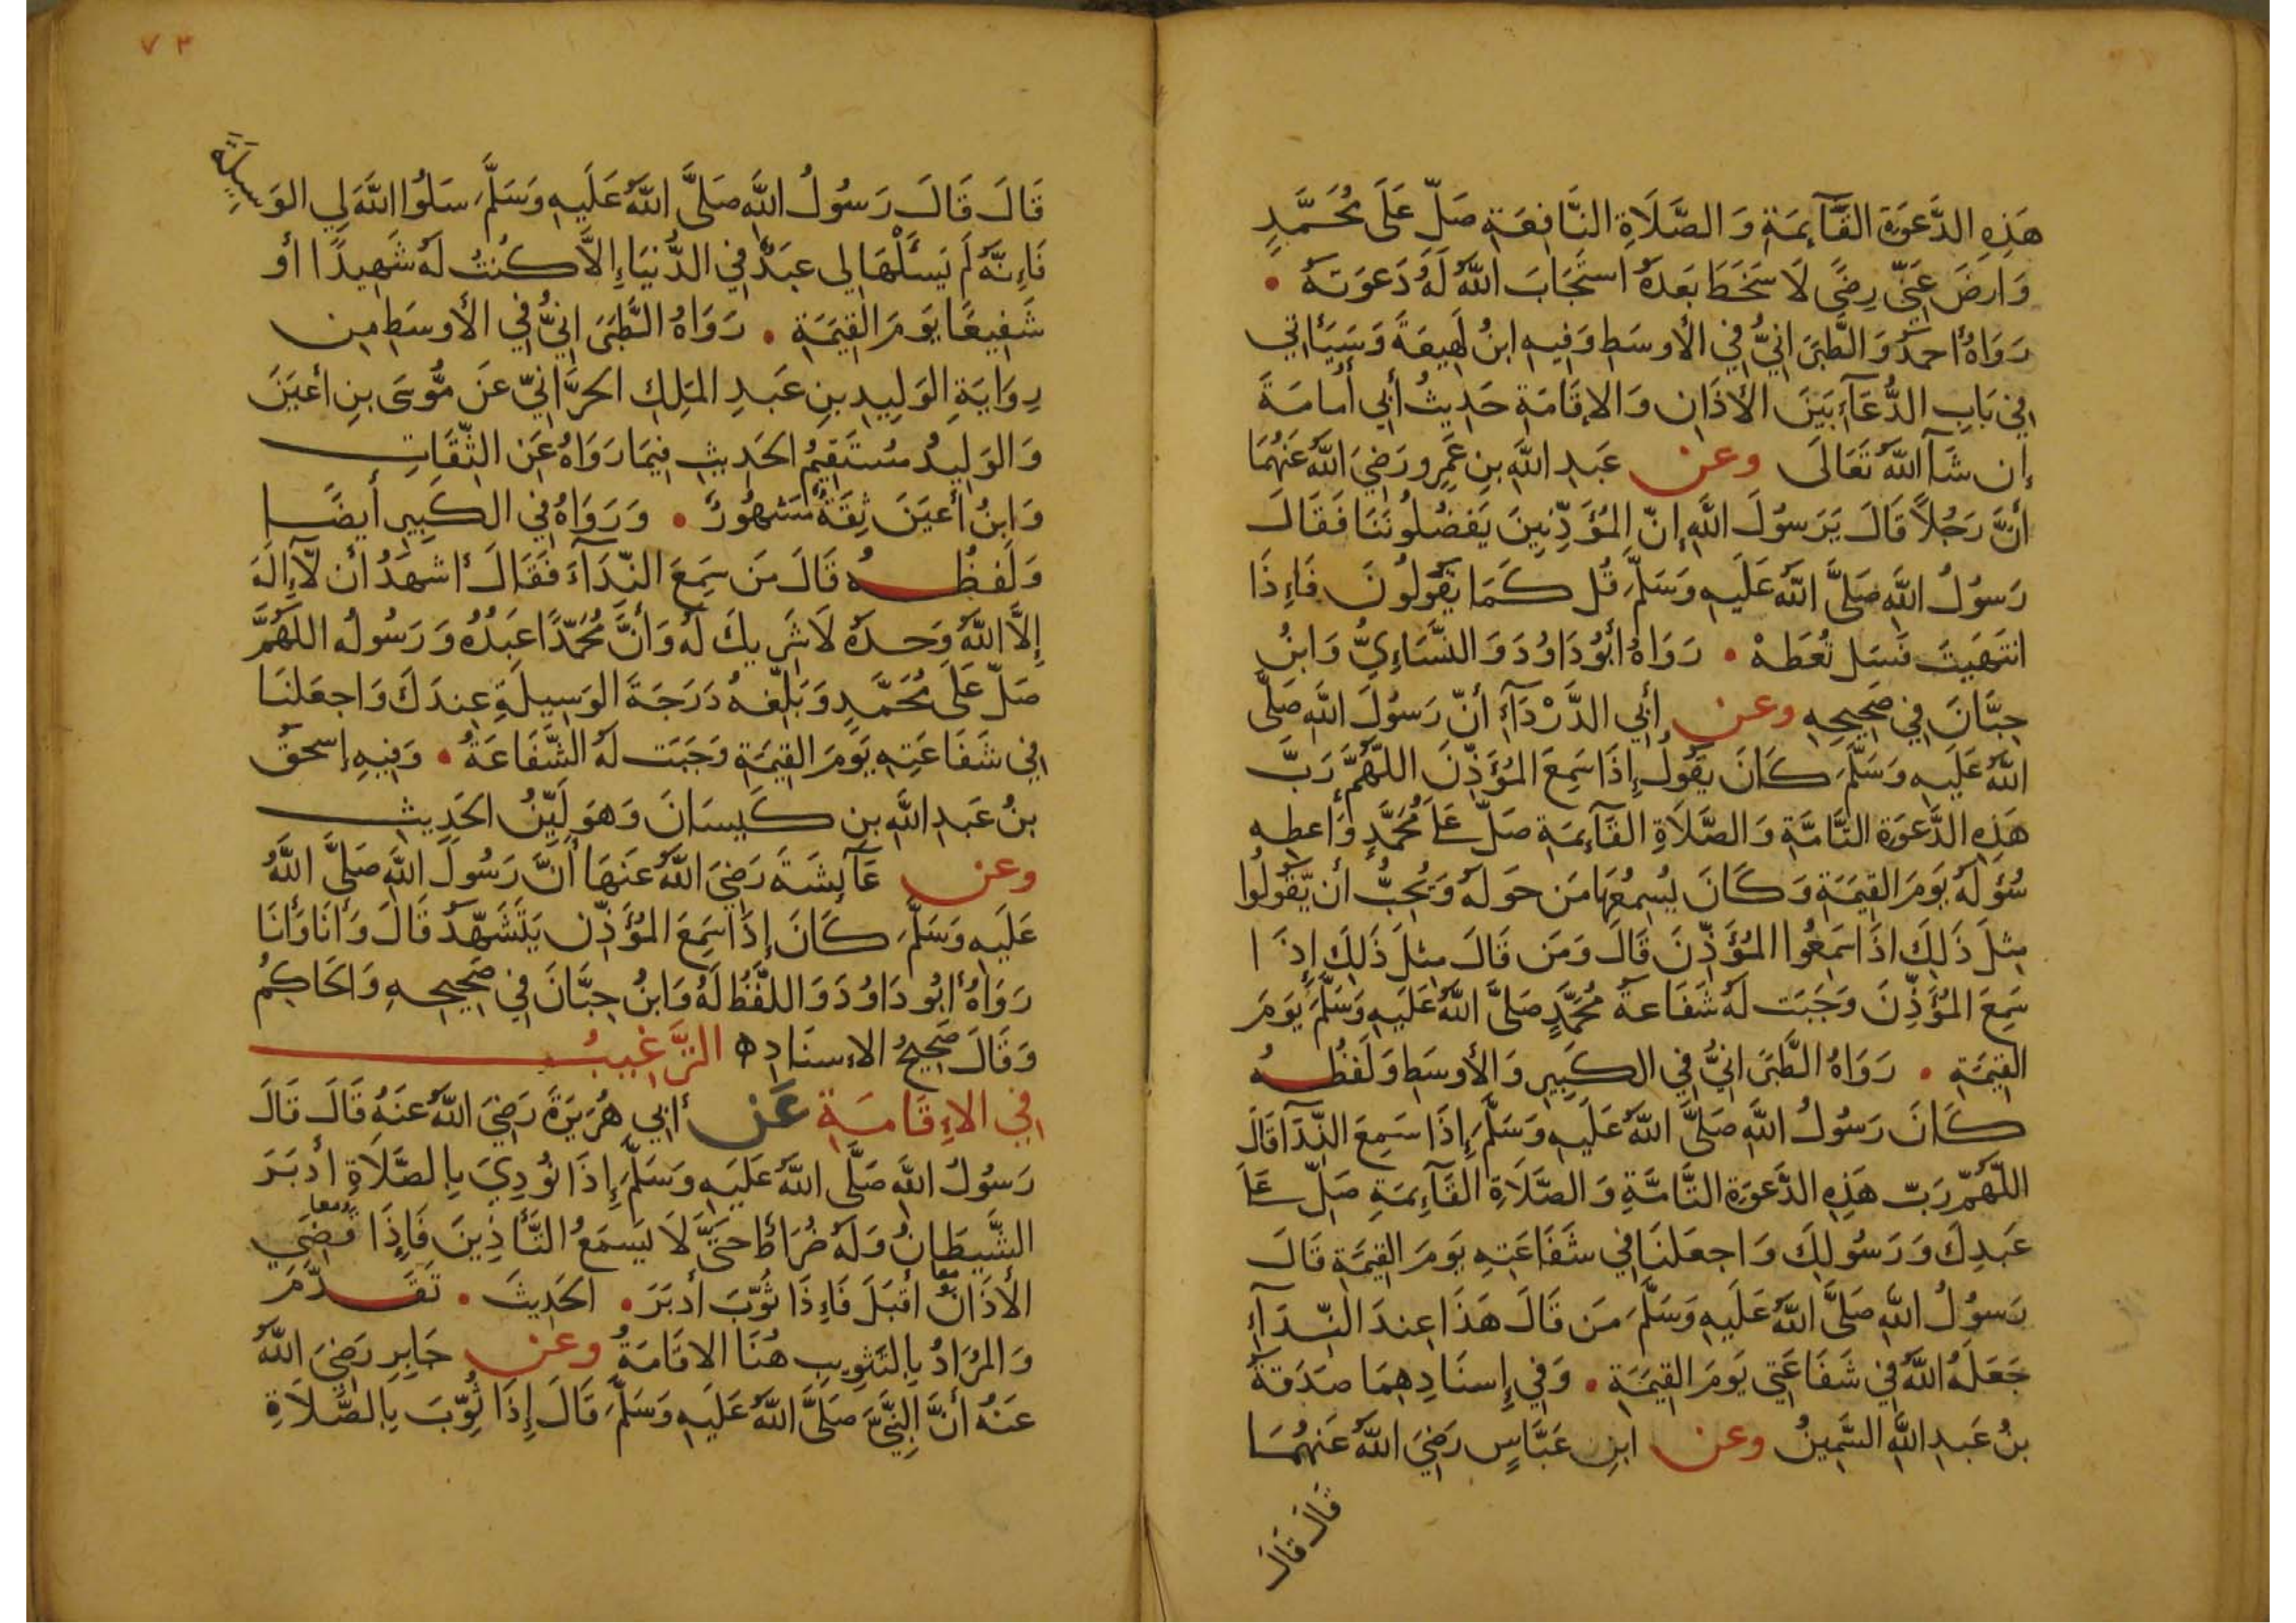 هَذِهِ الدَّعوَةِ القَآئِمَةِ وَالصَّلَاةِ النَّافِعَةِ صَلِّ عَلَى مُحَمَّدٍ
وَارضَ عَنِّي رِضًى لَا سَخَطَ بَعدَهُ استَجَابَ اللَّهُ لَهُ دَعوَتَهُ •
رَوَاهُ احمَدُ وَالطَّبَرَانِيُّ فِي الأَوسَطِ وَفِيهِ ابنُ لَهِيعَةَ وَسَيَأتِي
فِي بَابِ الدُّعَآءِ بَينَ الأَذَانِ وَالإِقَامَةِ حَدِيثُ أَبِي أُمَامَةَ
إِن شَآ اللَّهُ تَعَالَى وعن عَبدِ اللَّهِ بنِ عَمرٍو رَضِيَ اللَّهُ عَنهُمَا
أَنَّ رَجُلاً قَالَ يَرَسُولَ اللَّهِ إِنَّ المُؤَذِّنِينَ يَفضُلُونَنَا فَقَالَ
رَسُولُ اللَّهِ صَلَّى اللَّهُ عَلَيهِ وَسَلَّمَ قُل كَمَا يَقُولُونَ فَإِذَا
انتَهَيتَ فَسَل تُعطَهْ • رَوَاهُ أَبُو دَاوُدَ وَالنَّسَاءِيُّ وَابنُ
حِبَّانَ فِي صَحِيحِهِ وعن أَبِي الدَّرْدَآءِ أَنَّ رَسُولَ اللَّهِ صَلَّى
اللَّهُ عَلَيهِ وَسَلَّمَ كَانَ يَقُولُ إِذَا سَمِعَ المُؤَذِّنَ اللَّهُمَّ رَبَّ
هَذِهِ الدَّعوَةِ التَّامَّةِ وَالصَّلَاةِ القَآئِمَةِ صَلِّ عَلَى مُحَمَّدٍ وَأَعطِهِ
سُؤلَهُ يَومَ القِيَمَةِ وَكَانَ يُسمِعُهَا مَن حَولَهُ وَيُحِبُّ أَن يَّقُولُوا
مِثلَ ذَلِكَ اذَا سَمِعُوا المُؤَذِّنَ قَالَ وَمَن قَالَ مِثلَ ذَلِكَ إِذَا
سَمِعَ المُؤَذِّنَ وَجَبَت لَهُ شَفَاعَةُ مُحَمَّدٍ صَلَّى اللَّهُ عَلَيهِ وَسَلَّمَ يَومَ
القِيَمَةِ • رَوَاهُ الطَّبَرَانِيُّ فِي الكَبِيرِ وَالأَوسَطِ وَلَفظُهُ
كَانَ رَسُولُ اللَّهِ صَلَّى اللَّهُ عَلَيهِ وَسَلَّمَ إِذَا سَمِعَ النِّدَآ قَالَ
اللَّهُمَّ رَبَّ هَذِهِ الدَّعوَةِ التَّامَّةِ وَالصَّلَاةِ القَآئِمَةِ صَلِّ عَلَى
عَبدِكَ وَرَسُولِكَ وَاجعَلنَا فِي شَفَاعَتِهِ يَومَ القِيَمَةِ قَالَ
رَسُولُ اللَّهِ صَلَّى اللَّهُ عَلَيهِ وَسَلَّمَ مَن قَالَ هَذَا عِندَ النِّدَآءِ
جَعَلَهُ اللَّهُ فِي شَفَاعَتِي يَومَ القِيَمَةِ • وَفِي إِسنَادِهِمَا صَدَقَةُ
بنُ عَبدِ اللَّهِ السَّمِينُ وعن ابنِ عَبَّاسٍ رَضِيَ اللَّهُ عَنهُمَا
قَالَ قَالَ
٧٣
قَالَ قَالَ رَسُولُ اللَّهِ صَلَّى اللَّهُ عَلَيهِ وَسَلَّمَ سَلُوا اللَّهَ لِي الوَسِيلَةَ
فَإِنَّهُ لَم يَسئَلْهَا لِي عَبدٌ فِي الدُّنيَا إِلَّا كُنتُ لَهُ شَهِيدًا أَو
شَفِيعًا يَومَ القِيَمَةِ • رَوَاهُ الطَّبَرَانِيُّ فِي الأَوسَطِ مِن
رِوَايَةِ الوَلِيدِ بنِ عَبدِ المَلِكِ الحَرَّانِيِّ عَن مُّوسَى بنِ أَعيَنَ
وَالوَلِيدُ مُستَقِيمُ الحَدِيثِ فِيمَا رَوَاهُ عَنِ الثِّقَاتِ
وَابنُ أَعيَنَ ثِقَةٌ مَشهُورٌ • وَرَوَاهُ فِي الكَبِيرِ أَيضًا
وَلَفظُهُ قَالَ مَن سَمِعَ النِّدَآءَ فَقَالَ أَشهَدُ أَن لَّآ إِلَهَ
إِلَّا اللَّهُ وَحدَهُ لَا شَرِيكَ لَهُ وَأَنَّ مُحَمَّدًا عَبدُهُ وَرَسُولُه اللَّهُمَّ
صَلِّ عَلَى مُحَمَّدٍ وَبَلِّغهُ دَرَجَةَ الوَسِيلَةِ عِندَكَ وَاجعَلنَا
فِي شَفَاعَتِهِ يَومَ القِيَمَةِ وَجَبَت لَهُ الشَّفَاعَةُ • وَفِيهِ إِسحَقُ
بنُ عَبدِ اللَّهِ بنِ كَيسَانَ وَهوَ لَيِّنُ الحَدِيثِ
وعن عَآئِشَةَ رَضِيَ اللَّهُ عَنهَا أَنَّ رَسُولَ اللَّهِ صَلَّى اللَّهُ
عَلَيهِ وَسَلَّمَ كَانَ إِذَا سَمِعَ المُؤَذِّن يَتَشَهَّدُ قَالَ وَأَنَا وَأَنَا
رَوَاهُ أَبُو دَاوُدَ وَاللَّفظُ لَهُ وَابنُ حِبَّانَ فِي صَحِيحِهِ وَالحَاكِمُ
وَقَالَ صَحِيحُ الاِسنَادِ ه التَّرغِيبُ
فِي الاِقَامَةِ عَن أَبِي هُرَيرَةَ رَضِيَ اللَّهُ عَنهُ قَالَ قَالَ
رَسُولُ اللَّهِ صَلَّى اللَّهُ عَلَيهِ وَسَلَّمَ إِذَا نُودِيَ بِالصَّلَاةِ أَدبَرَ
الشَّيطَانُ وَلَهُ ضُرَاطٌ حَتَّى لَا يَسمَعُ التَّأذِينَ فَإِذَا قُضِيَ معا
الأَذَانُ معا أَقبَلَ فَإِذَا ثُوِّبَ أَدبَرَ • الحَدِيثَ • تَقَدَّمَ
وَالمُرَادُ بِالتَّثوِيبِ هُنَا الاقَامَةُ وعن جَابِرٍ رَضِيَ اللَّهُ
عَنهُ أَنَّ النَّبِيَّ صَلَّى اللَّهُ عَلَيهِ وَسَلَّمَ قَالَ إِذَا ثُوِّبَ بِالصَّلَاةِ